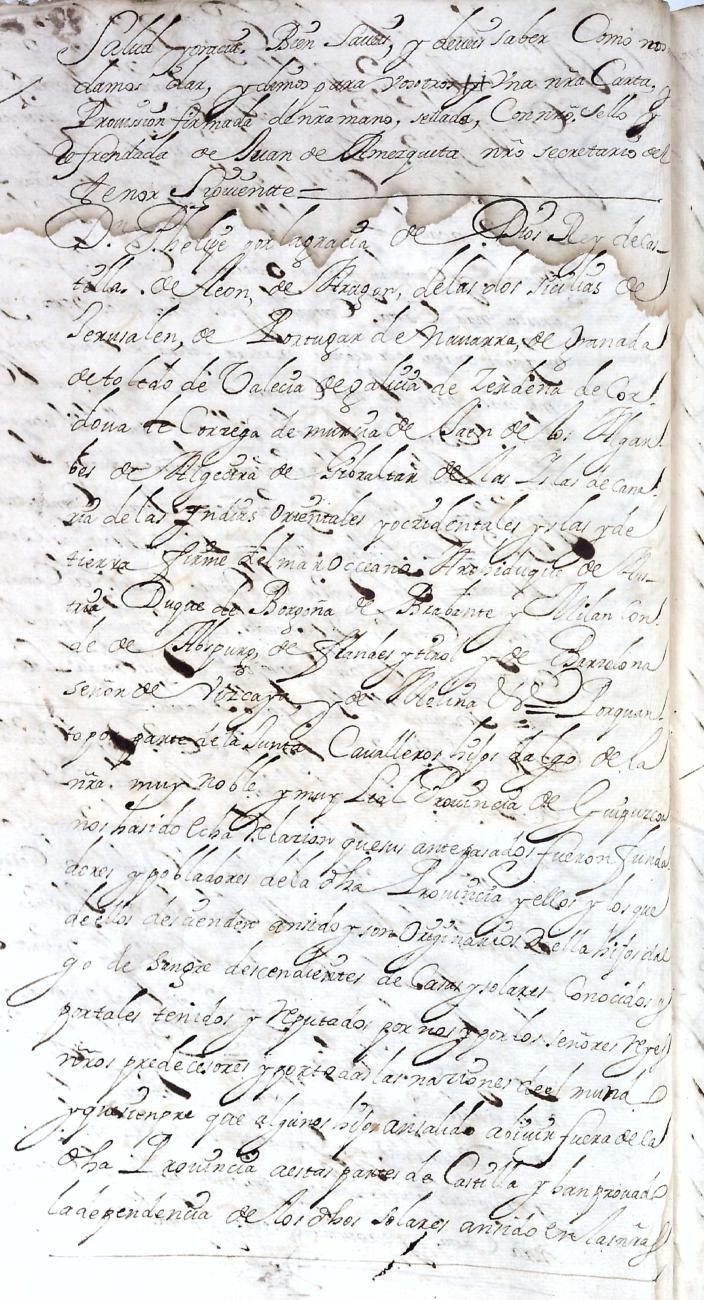 Salud y gracia. Bien saveis, y deveis saber Como mo
damos dar, y dimos para Vosotros Una nrã Carta, y
Provission firmada de nrã mano, sellada, Con nrõ sello y
Refrendada de Juan de Amezquita nrõ secretario del
tenor Siguientte
Dn. Phelipe por la gracia de Dios Rey de Cas-
tilla de Leon, de Aragon, de las dos sicilias de
Jerusalen, de Portugar de Navarra, de granada
de toledo de Valecia de galicia de Zerdeña de Cor
dova de Correga de murcia de Jaen de los Algar
bes de Algecira de Gibraltar de las Yslas de Cana
ria de las Yndias Orientales y ocidentales yslas y de
tierra firme del mar Occeano Archiduque de Aus-
tria Duque de Borgoña de Brabante y Milan Con
de de Abspurg, de Flandes y tirol y de Barzelona
señor de Vizcaya, y de Molina &ª Porquan
to por parte de la Junta Cavalleros hijos dalgo de la
nrã muy noble y muy Leal Provincia de Guipuzcoa
nos ha sido hecha Relacion que sus antepasados fueron funda
dores y pobladores de la dha Provincia y ellos y los que
de ellos descienden an sido y son Originarios de ella hijos dal
go de sangre descendientes de Casas y solares Conocidos y
por tales tenidos y reputados por nos y por los señores Reyes
nrõs predecesores y por todas las naciones de el mundo
y que siempre que algunos hijos an salido a bivir fuera de la
dha Provincia a estas partes de Castilla y han provado
la dependencia de los dhos solares an sido en las nrãs